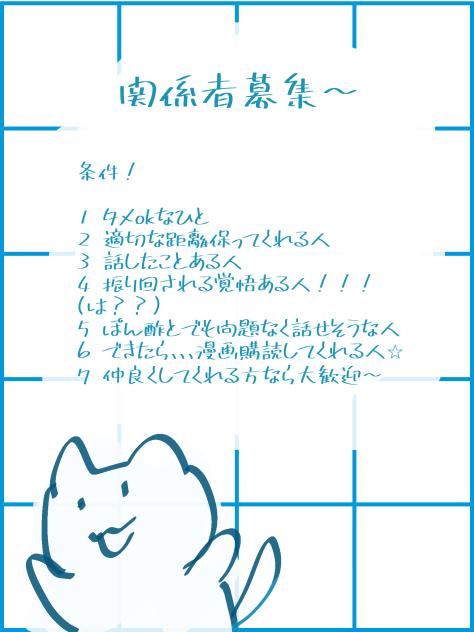 関係者募集～
条件！
1 タメokなひと
2 適切な距離保ってくれる人
3 話したことある人
4 振り回される覚悟ある人！！！
（は？？）
5 ぽん酢とでも問題なく話せそうな人
6 できたら、、、漫画購読してくれる人☆
7 仲良くしてくれる方なら大歓迎～